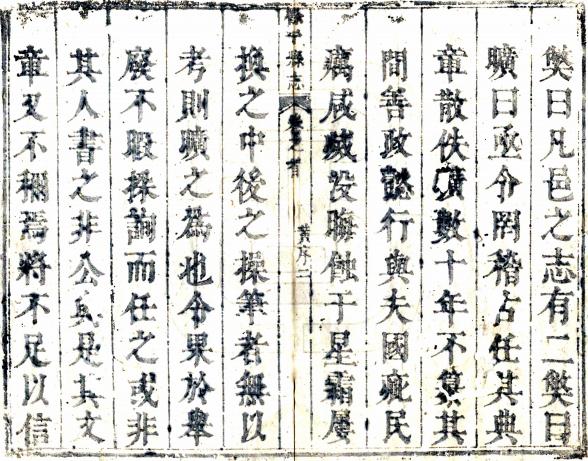 獘曰凡邑之志有二獘曰
曠曰亟令罔稽占任其典
章散佚曠數十年不纂其
間善政懿行與夫國疵民
癘咸滅沒晦蝕于星霜屢
平縣志 卷之首 黃序二
換之中後之操筆者無以
考則曠之爲也令果於舉
廢不暇採詢而任之或非
其人書之非公與是其文
章又不稱焉將不足以信